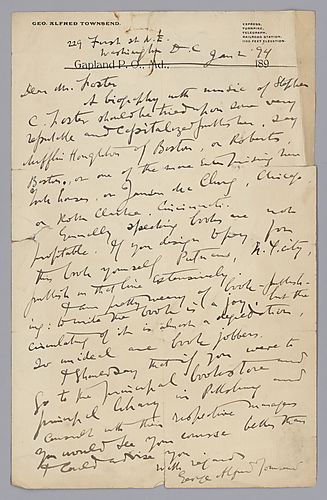 GEO. ALFRED TOWNSEND.
EXPRESS,
TURNPIKE,
TELEGRAPH,
RAILROAD STATION:
1100 FEET ELEVATION.
229 First st. N.E.
Washington D.C. Jan 2 94
Gapland P. O., Md., 189
Dear Mr. Foster
A biography with music of Stephen
C. Foster should be tried upon some very
reputable and capitalized publisher, say
Mifflin Houghton of Boston, or Roberts,
Boston, or on one of the more enterprising New
York houses, or Jansen McClurg, Chicago
or Robt Clarke, Cincinnati.
Generally speaking books are not
profitable. If you design to pay for
the book yourself Putnams, N.Y. city,
publish in that line extensively.
I am pretty weary of book-publish-
ing: to write the book is a joy, but the
circulating of it is almost a degradation,
so unideal are book jobbers.
I should say that if you were to
go to the principal bookstore and
principal library in Pittsburg and
consult with their respective managers
you would see your course better than
I could advise you.
with regards
George Alfred Townsend